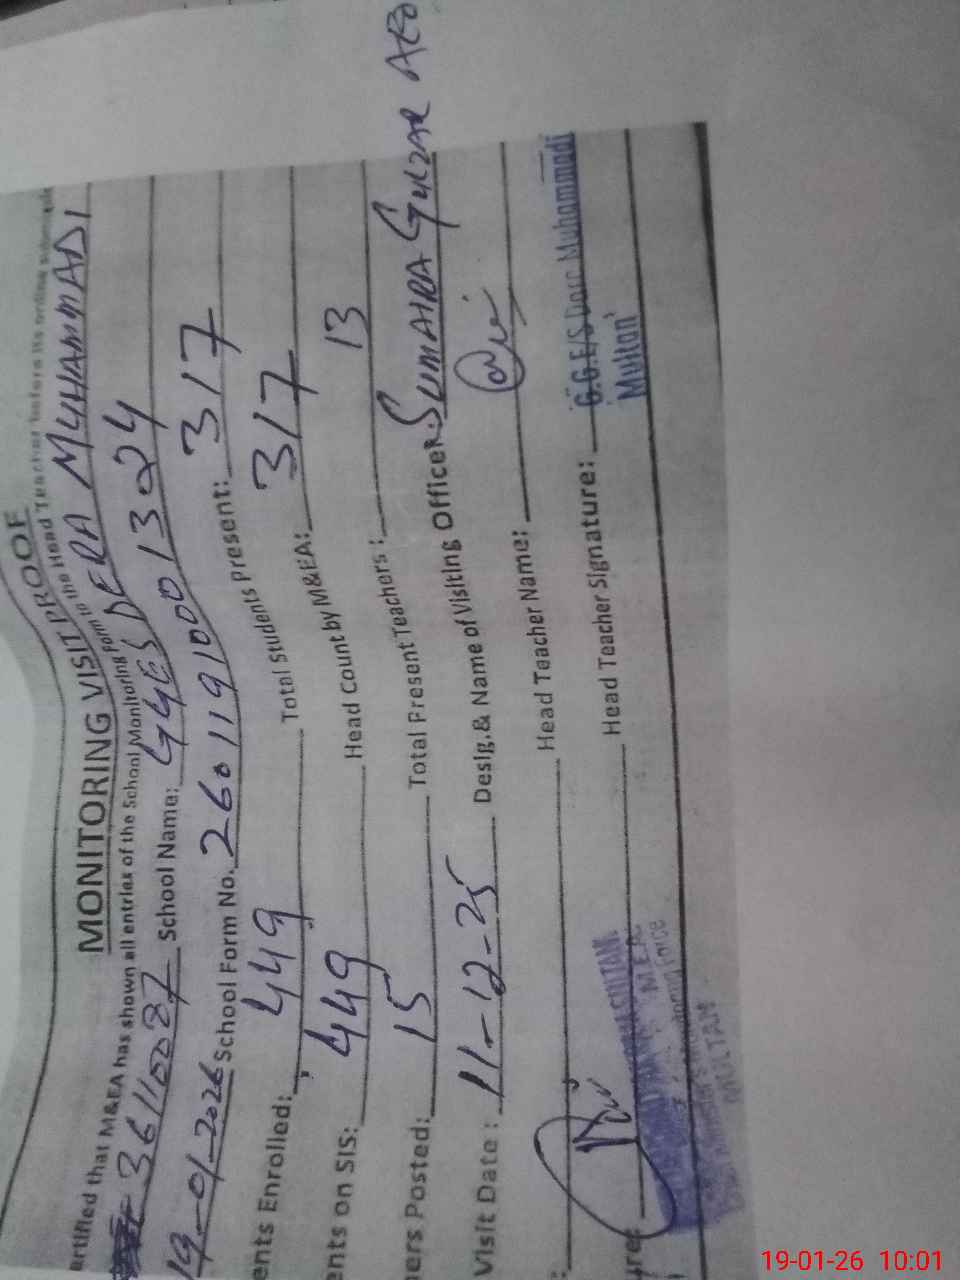 MONITORING VISIT PROOF
ertified that M&EA has shown all entries of the School Monitoring Form to the Head Teacher before its online
36110087 School Name: GGES DERA MUHAMMADI
19-01-2026 School Form No. 26011910001324
ents Enrolled: 449 Total Students Present: 317
ents on SIS: 449 Head Count by M&EA: 317
ners Posted: 15 Total Present Teachers: 13
Visit Date: 11-12-25 Desig.& Name of Visiting Officer: SUMAIRA GULZAR AEO
: Head Teacher Name:
re: Head Teacher Signature: G.G.E/S Muhammadi
Multan
M.E.A
MULTAN
19-01-26 10:01